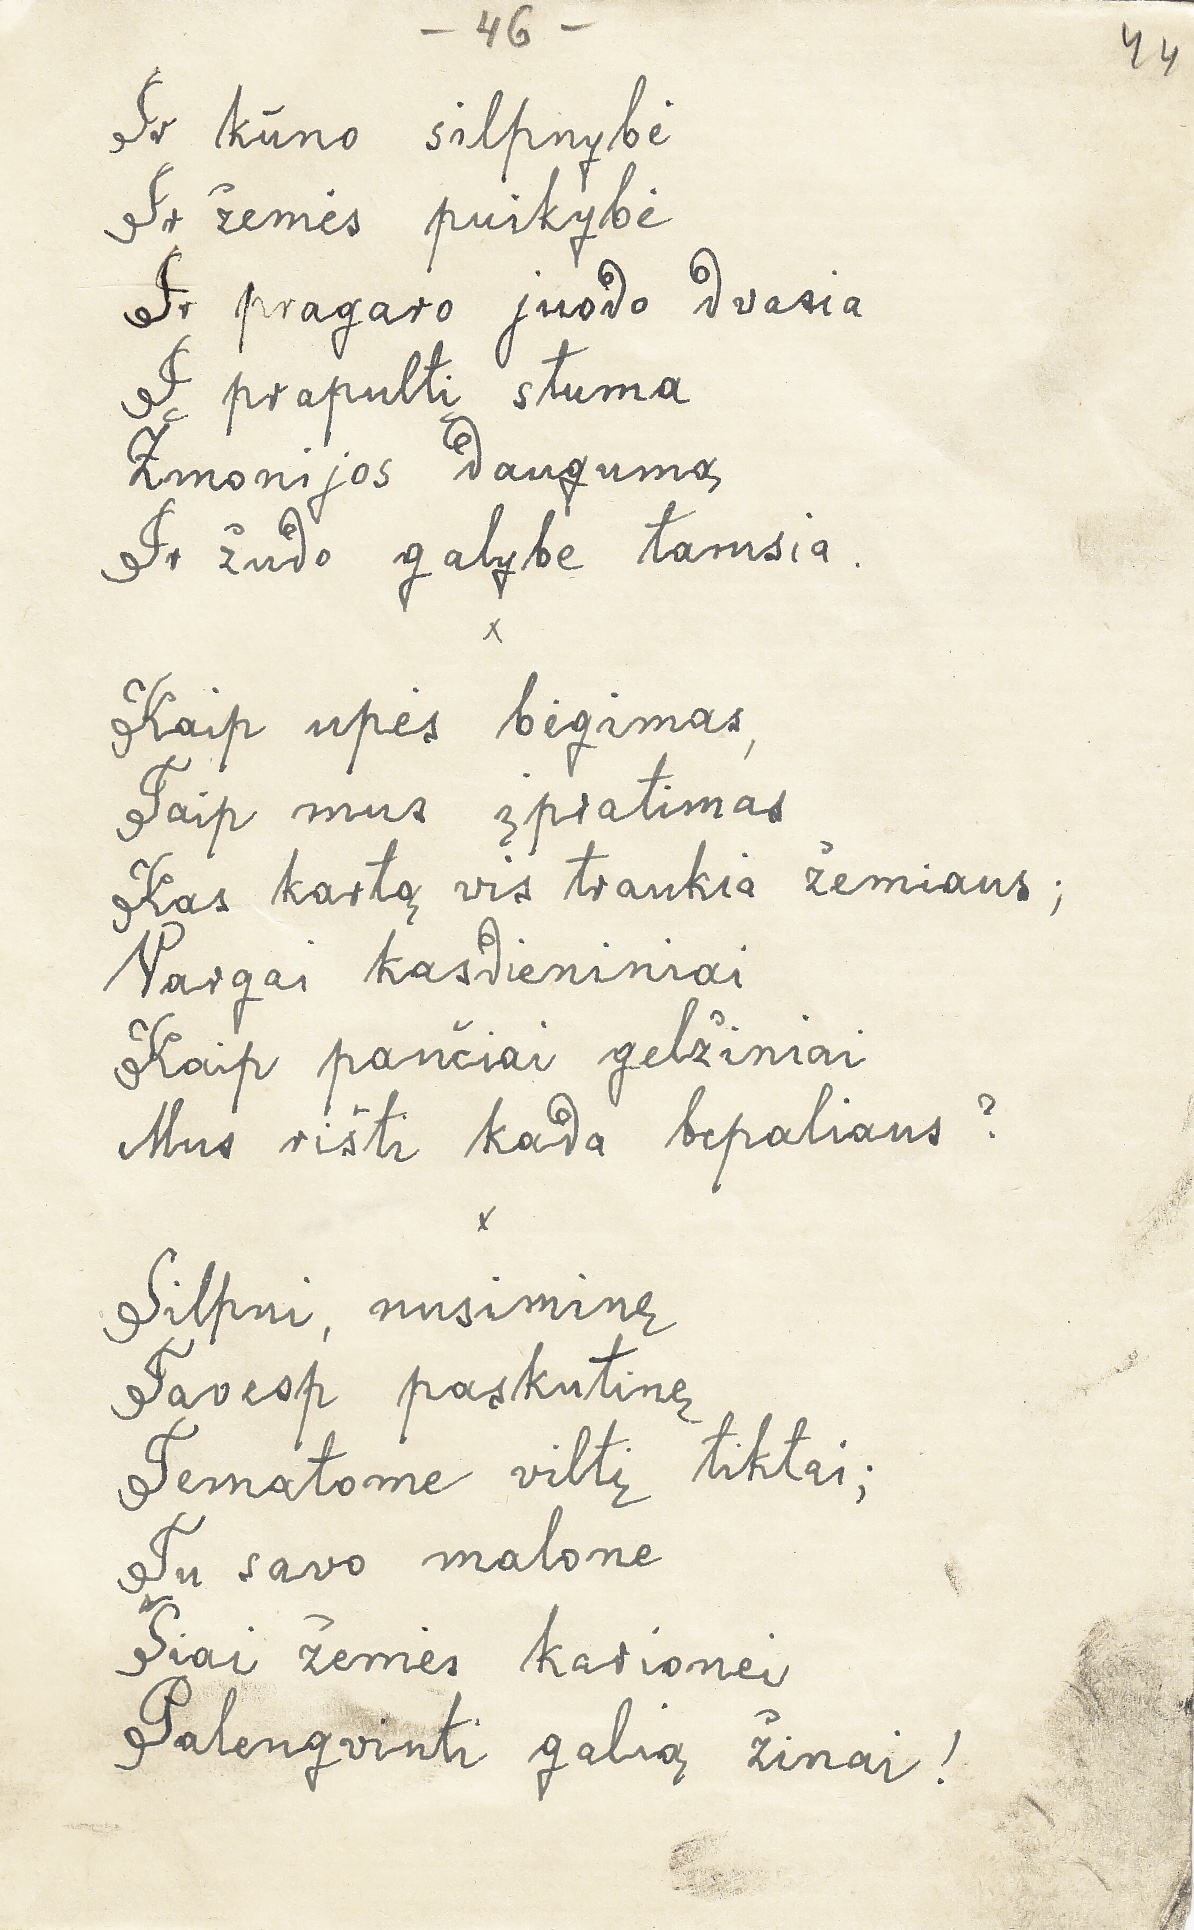 – 46 –
44
Ir kūno silpnybė
Ir žemės puikybė
Ir pragaro juodo dvasia
Į prapultį stuma
Žmonijos daugumą
Ir žudo galybe tamsia.
x
Kaip upės bėgimas,
Taip mus įpratimas
Kas kartą vis traukia žemiaus;
Vargai kasdieniniai
Kaip pančiai gelžiniai
Mus rišti kada bepaliaus?
x
Silpni, nusiminę
Tavesp paskutinę
Tematome viltį tiktai;
Tu savo malone
Šiai žemės karionei
Palengvinti galią žinai!